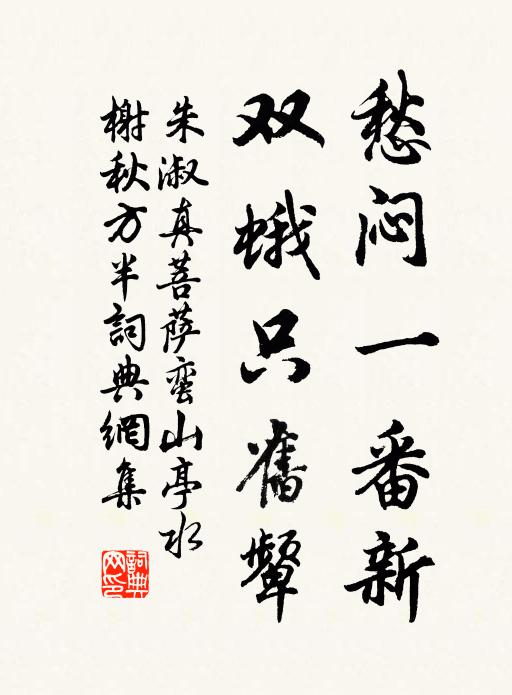 愁闷一番新
双蛾只舊颦
朱淑真菩萨蛮山亭水
榭秋方半詞典網集
詞典
网印